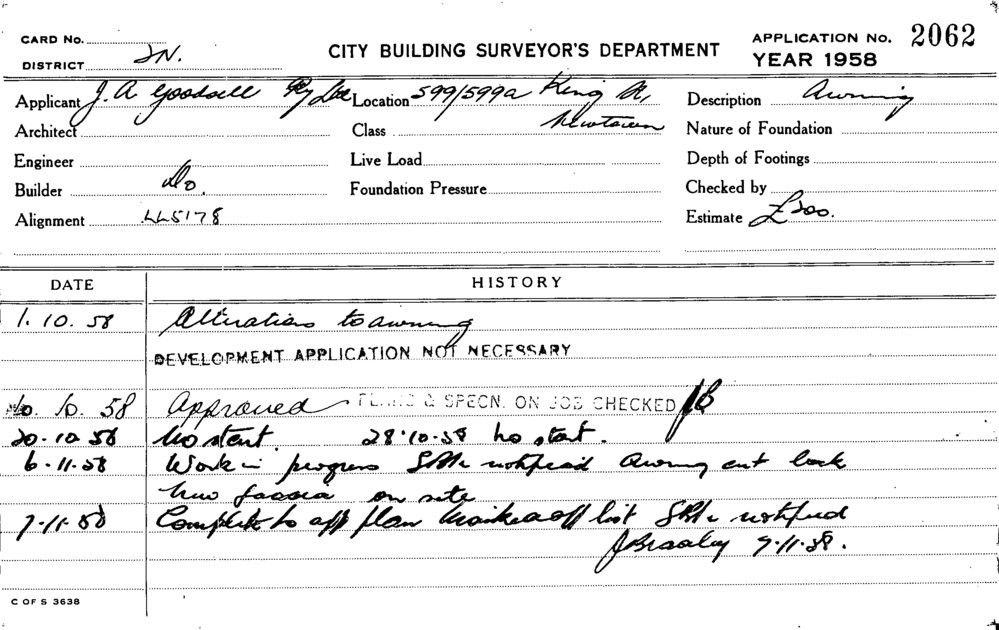 CARD No.
DISTRICT 2N.
CITY BUILDING SURVEYOR'S DEPARTMENT
APPLICATION No. 2062
YEAR 1958
Applicant J. A Goodsell Pty Ltd Location 599/599a King St, Description Awning
Architect Class Newtown Nature of Foundation
Engineer Live Load Depth of Footings
Builder Do. Foundation Pressure Checked by
Alignment LL5178 Estimate £200.
DATE HISTORY
1. 10. 58 Alterations to awning
DEVELOPMENT APPLICATION NOT NECESSARY
10. 58 Approved PLANS & SPECN. ON JOB CHECKED
20-10-58 No start 28-10-58 no start.
6-11-58 Work in progress notified Awning cut back
New fascia on site
7-11-58 Complete to app plan Marked off list notified
J Bradley 7-11-58.
C OF S 3638